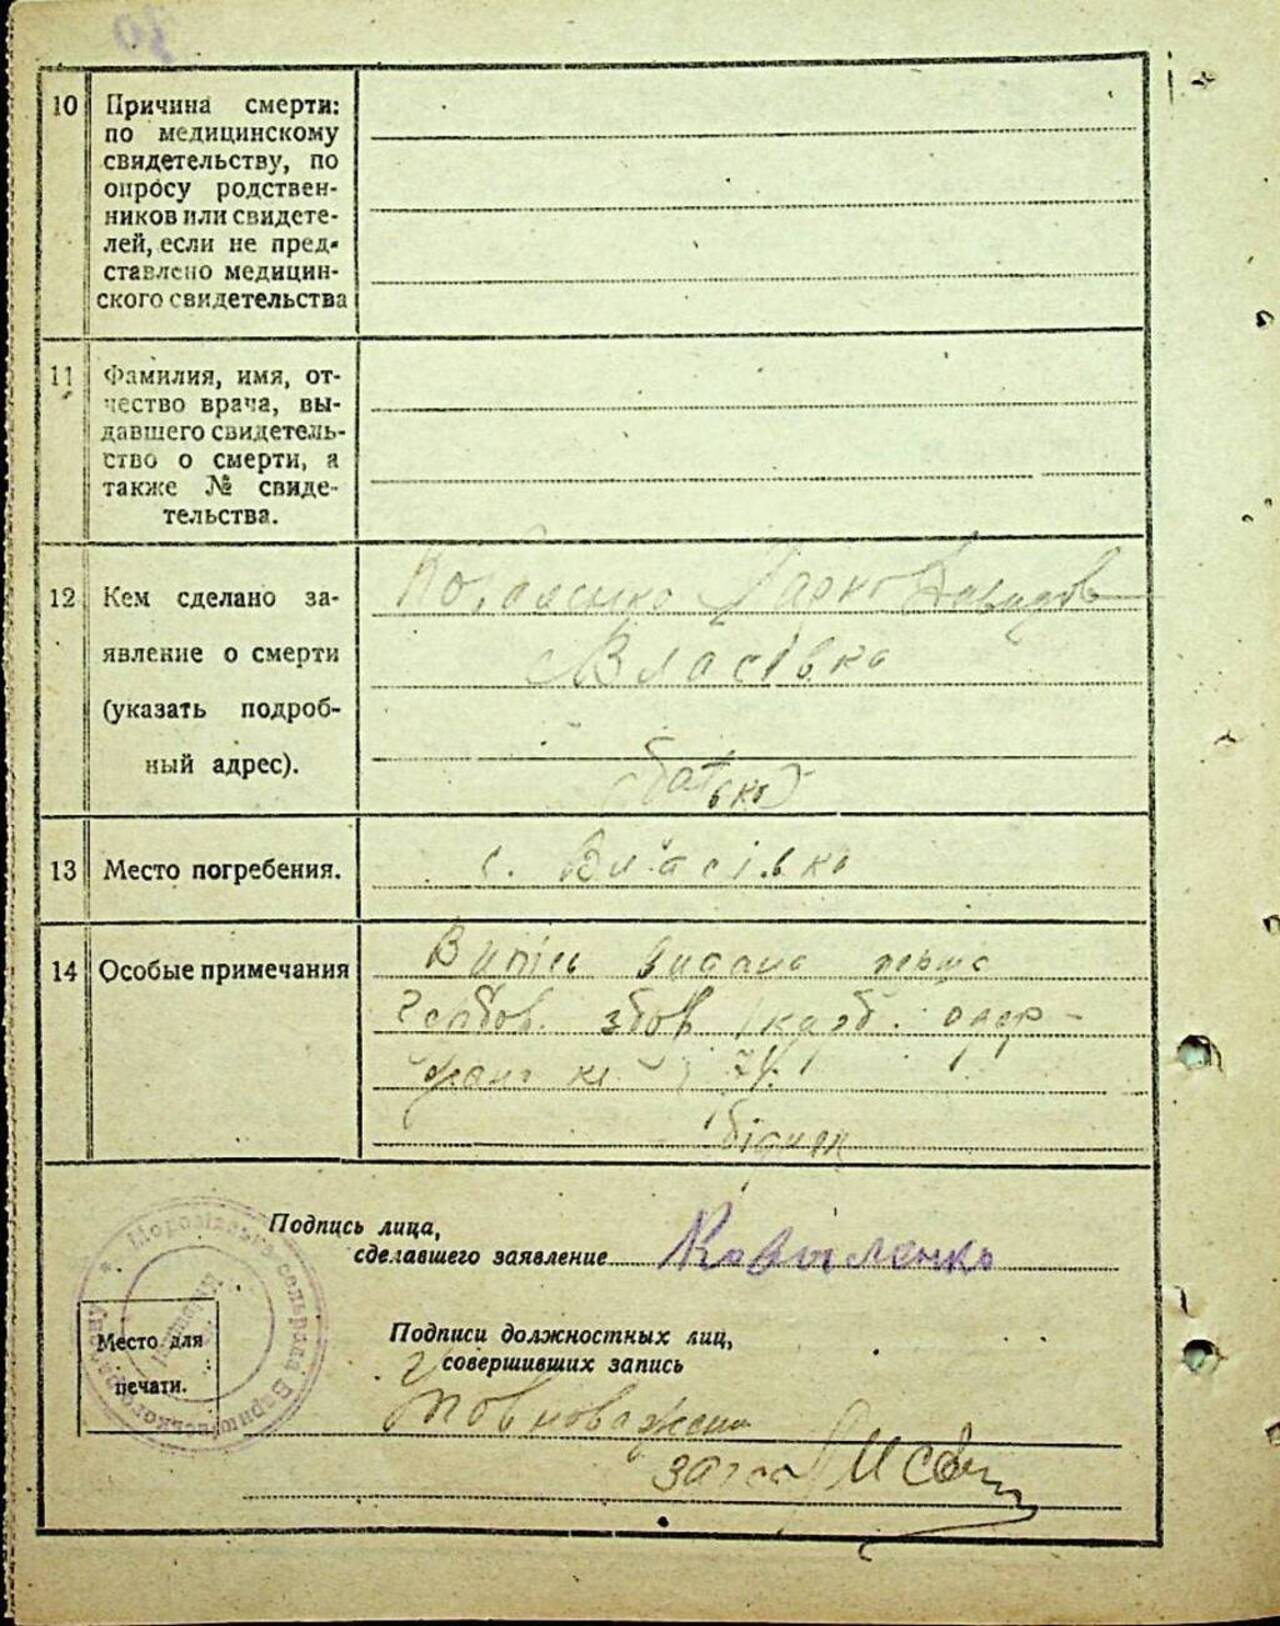 10
Причина смерти:
по медицинскому
свидетельству, по
опросу родствен-
ников или свидете-
лей, если не пред-
ставлено медицин-
ского свидетельства
11
Фамилия, имя, от-
чество врача, вы-
давшего свидетель-
ство о смерти, а
также № свиде-
тельства.
12
Кем сделано за-
явление о смерти
(указать подроб-
ный адрес).
Коваленко Марко Давидов
с Власівка
(батько)
13
Место погребения.
с. Власівка
14
Особые примечания
Випісь видана перша
бідняк
Подпись лица,
сделавшего заявление
Коваленко
Место для
печати.
Подписи должностных лиц,
совершивших запись
Уповноважени
загса